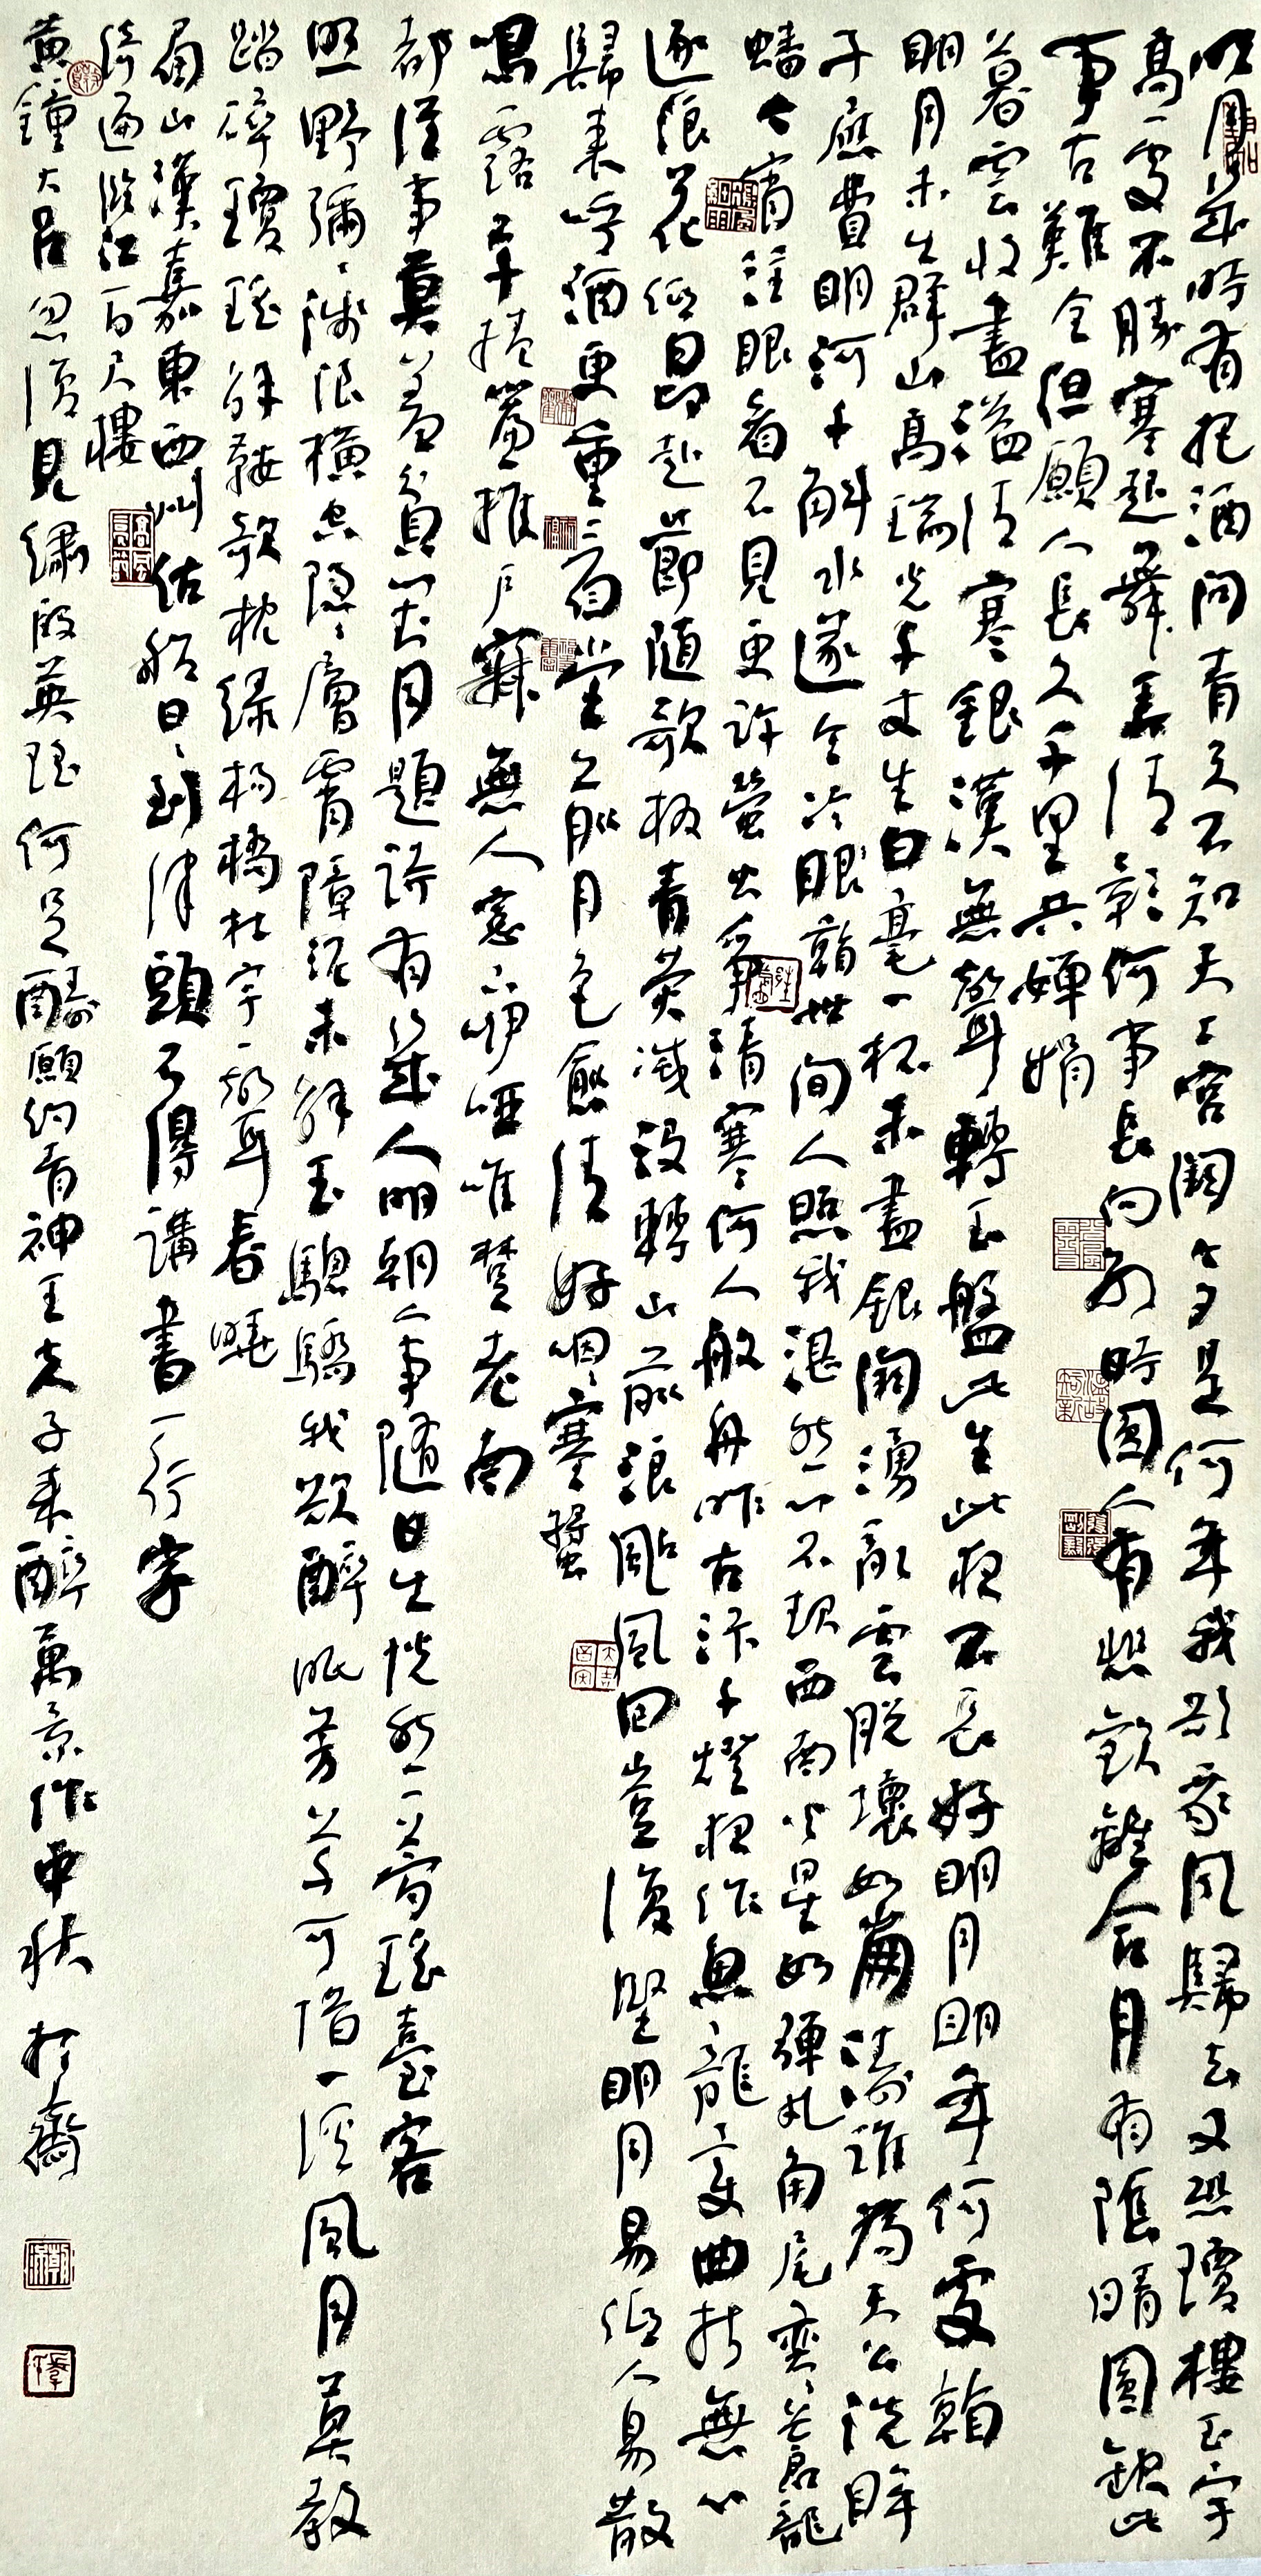 明月幾時有把酒問青天不知天上宮闕今夕是何年我欲乘風歸去又恐瓊樓玉宇
高處不勝寒起舞弄清影何事長向別時圓人有悲歡離合月有陰晴圓缺此
事古難全但願人長久千里共嬋娟
暮雲收盡溢清寒銀漢無聲轉玉盤此生此夜不長好明月明年何處看
明月未出群山高瑞光千丈生白毫一杯未盡銀闕湧亂雲脫壞如崩濤誰為天公洗眸
子應費明河千斛水遂令冷眼看世間人照我湛然心不起西南火星如彈丸角尾奕奕蒼龍
蟠今宵注眼看不見更許螢火爭清寒何人艤舟昨古汴千燈夜作魚龍變曲折無心
逐浪花低昂赴節隨歌板青熒滅沒轉山前浪颭風回豈復堅明月易低人易散
歸來呼酒更重看堂前月色愈清好咽咽寒螿
鳴露草捲簾推戶寂無人窗下咿啞唯楚老南
都從事莫羞貧對月題詩有幾人明朝人事隨日出恍然一夢瑤臺客
照野彌彌淺浪橫空隱隱層霄障泥未解玉驄驕我欲醉眠芳草可惜一溪風月莫教
踏碎瓊瑤解鞍欹枕綠楊橋杜宇一聲春曉
眉山漢嘉東西州估船日日到津頭不得講書一行字
倚遍臨江百尺樓
黃鐘大呂忽復見繡段英瑤何足酬願約青神王夫子來醉萬景作中秋 於齋